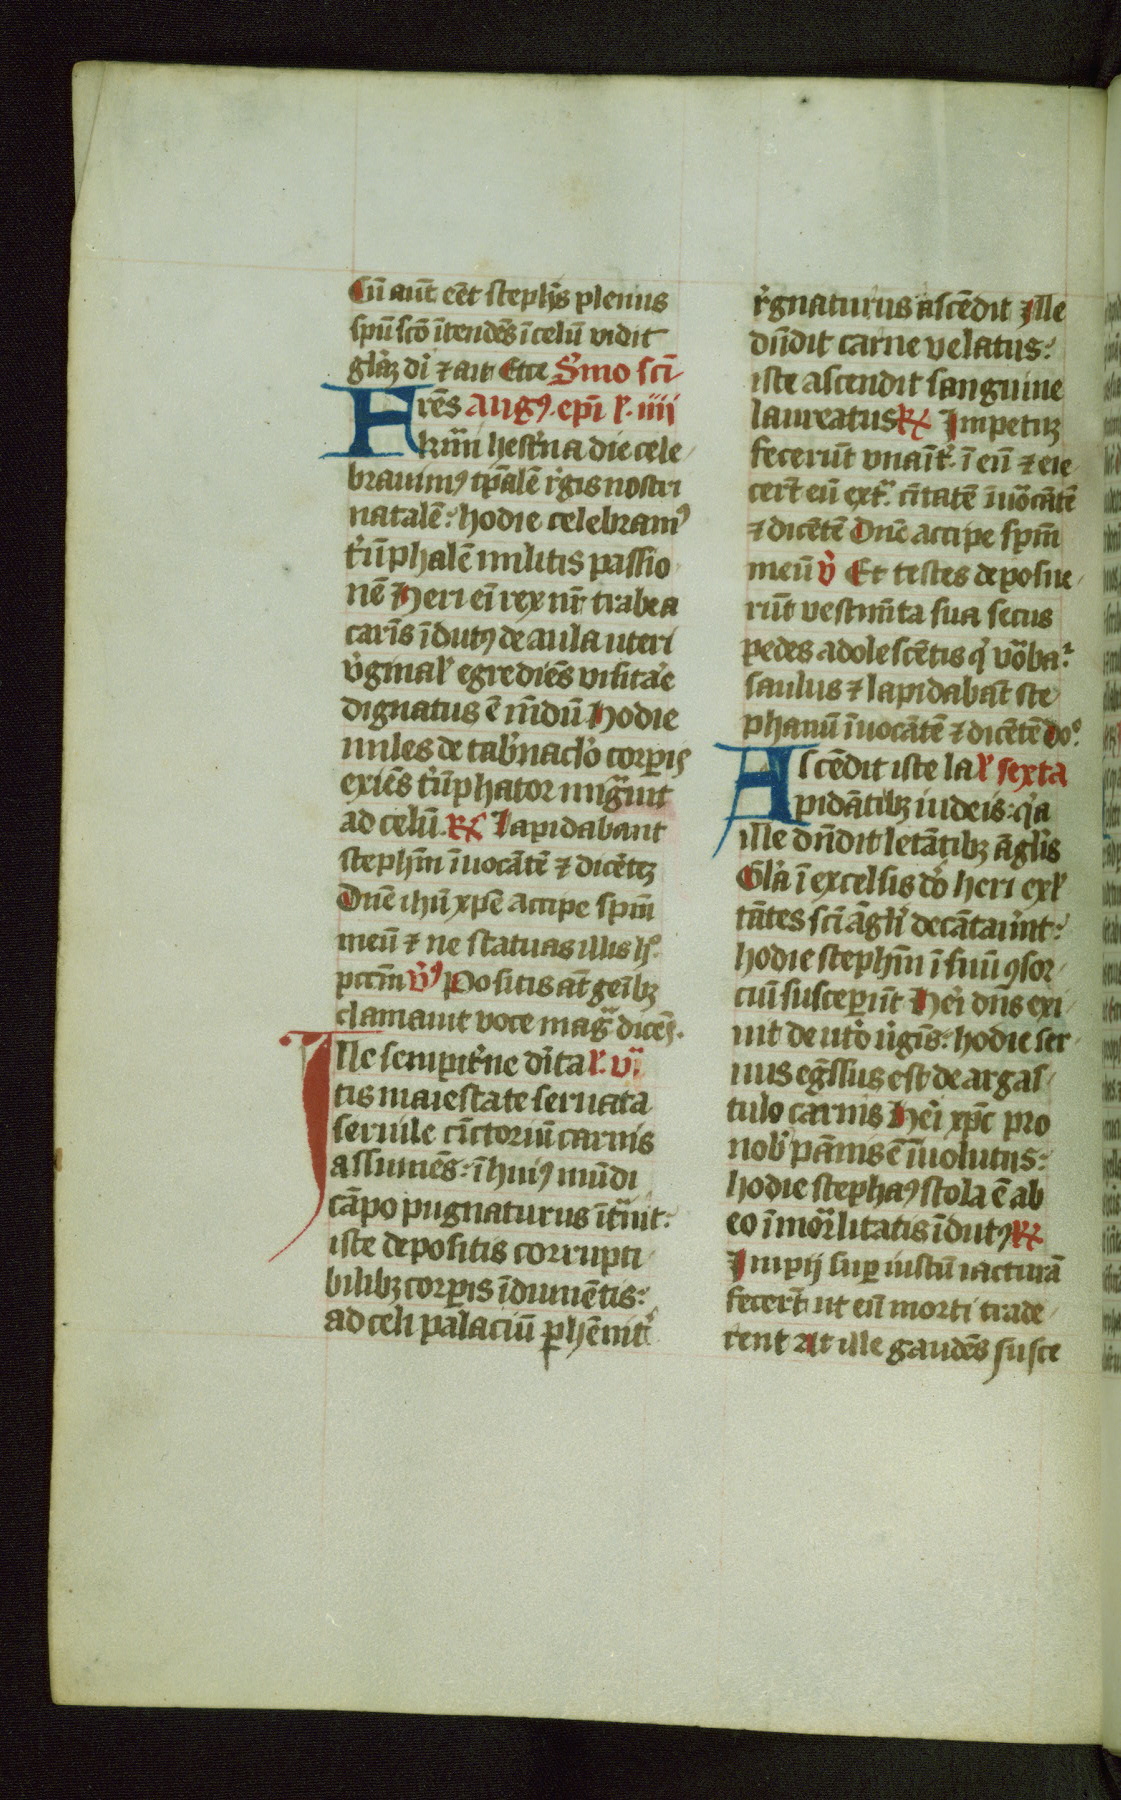 Cū aut̄ eēt stephs̄ plenus
spū scō ītendēs ī celū vidit
gl̄aȝ dī ⁊ ait Ecce Sṁo scī
Frēs Augꝰ ep̄i l̓ iiii
kr̄mi hest̓na die cele
brauimꝰ tp̄alē r̓gis nostri
natalē: hodie celebramꝰ
t̓ūphalē militis passio
nē Heri eī rex nr̄ trabea
carīs īdutꝰ de aula uteri
v̓ginal̓ egrediēs visita̓e
dignatus ē mūdū Hodie
miles de tab̓nacl̓o corꝑis
exiēs t̓ūphator migᷓuit
ad celū R̸ Lapidabant
stephm̄ īuocātē ⁊ dicētēȝ
Dn̄e ihū xpē accipe spm̄
meū ⁊ ne statuas illis h̓
pctm̄ v̓ꝰ Positis at̄ geībȝ
clamauit voce magᷓ dicēs
Ille sempit̓ne dīta l̓ vͣ
tis maiestate seruata
seruile cīctoriū carnis
assumēs: ī huiꝰ mūdi
cāpo pugnaturus ītᷓuit:
iste depositis corrupti
bilibȝ corꝑis īdumētis:
ad celi palaciū ꝑhēnit̓
r̓gnaturus ascēdit Ille
dn̄dit carne velatus:
iste ascendit sanguine
laureatus R̸ Impetuȝ
fecerūt vnaīt̓ ī eū ⁊ eie
cert̄ eū extᷓ ciitatē īuōcātē
⁊ dicētē Dn̄e accipe spm̄
meū v̓ Et testes deposue
rūt vestim̄ta sua secus
pedes adolescētis qⁱ vōbaᵗ
saulus ⁊ lapidabāt ste
phanū īuocātē ⁊ dicētē do͛
Ascēdit iste la l̓ sexta
pidātibȝ iudeis: qⁱa
ille dn̄dit letātibȝ āgl̓is
Gl̓a ī excelsis dō heri exl̓
tātes scī āgl̓i decātauīnt:
hodie stephm̄ ī suū ꝯsor
ciū susceꝑūt He̓i dn̄s exi
uit de ut̓o v̓gis̄: hodie ser
uus egᷓssus est de argas
tulo carnis He̓i xpc̄ pro
nob̓ pānis ē īuolutus:
hodie stephaꝰ stola ē ab
eo īmorᷓlitatis īdutꝰ R̸
Impij suꝑ iustū iacturā
fecert̄ ut eū morti trade
rent At ille gaudēs susce